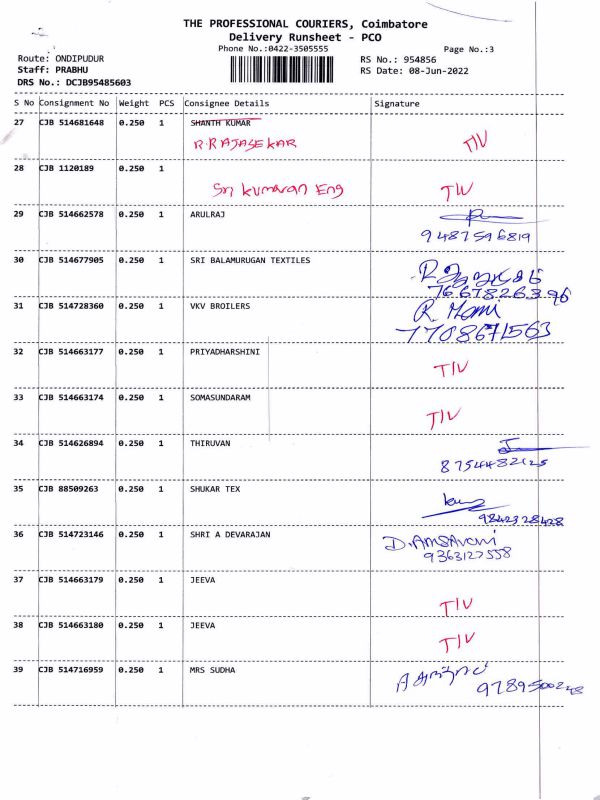 THE PROFESSIONAL COURIERS, Coimbatore
Delivery Runsheet - PCO
Phone No.:0422-3505555
Page No.:3
Route: ONDIPUDUR
RS No.: 954856
Staff: PRABHU
RS Date: 08-Jun-2022
DRS No.: DCJB95485603
S No Consignment No Weight PCS Consignee Details Signature
27 CJB 514681648 0.250 1 SHANTH KUMAR
R.RAJASEKAR TIV
28 CJB 1120189 0.250 1
Sri Kumaran Eng TIV
29 CJB 514662578 0.250 1 ARULRAJ
9487596819
30 CJB 514677905 0.250 1 SRI BALAMURUGAN TEXTILES
7667826396
31 CJB 514728360 0.250 1 VKV BROILERS R. Mani
7708671563
32 CJB 514663177 0.250 1 PRIYADHARSHINI
TIV
33 CJB 514663174 0.250 1 SOMASUNDARAM
TIV
34 CJB 514626894 0.250 1 THIRUVAN
8754482125
35 CJB 88509263 0.250 1 SHUKAR TEX
9842328428
36 CJB 514723146 0.250 1 SHRI A DEVARAJAN D. AMSAveni
9363127558
37 CJB 514663179 0.250 1 JEEVA
TIV
38 CJB 514663180 0.250 1 JEEVA
TIV
39 CJB 514716959 0.250 1 MRS SUDHA